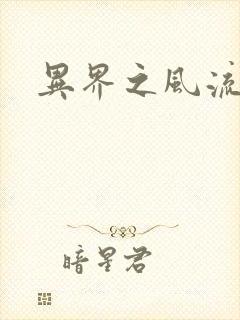 異界之風流
暗星君